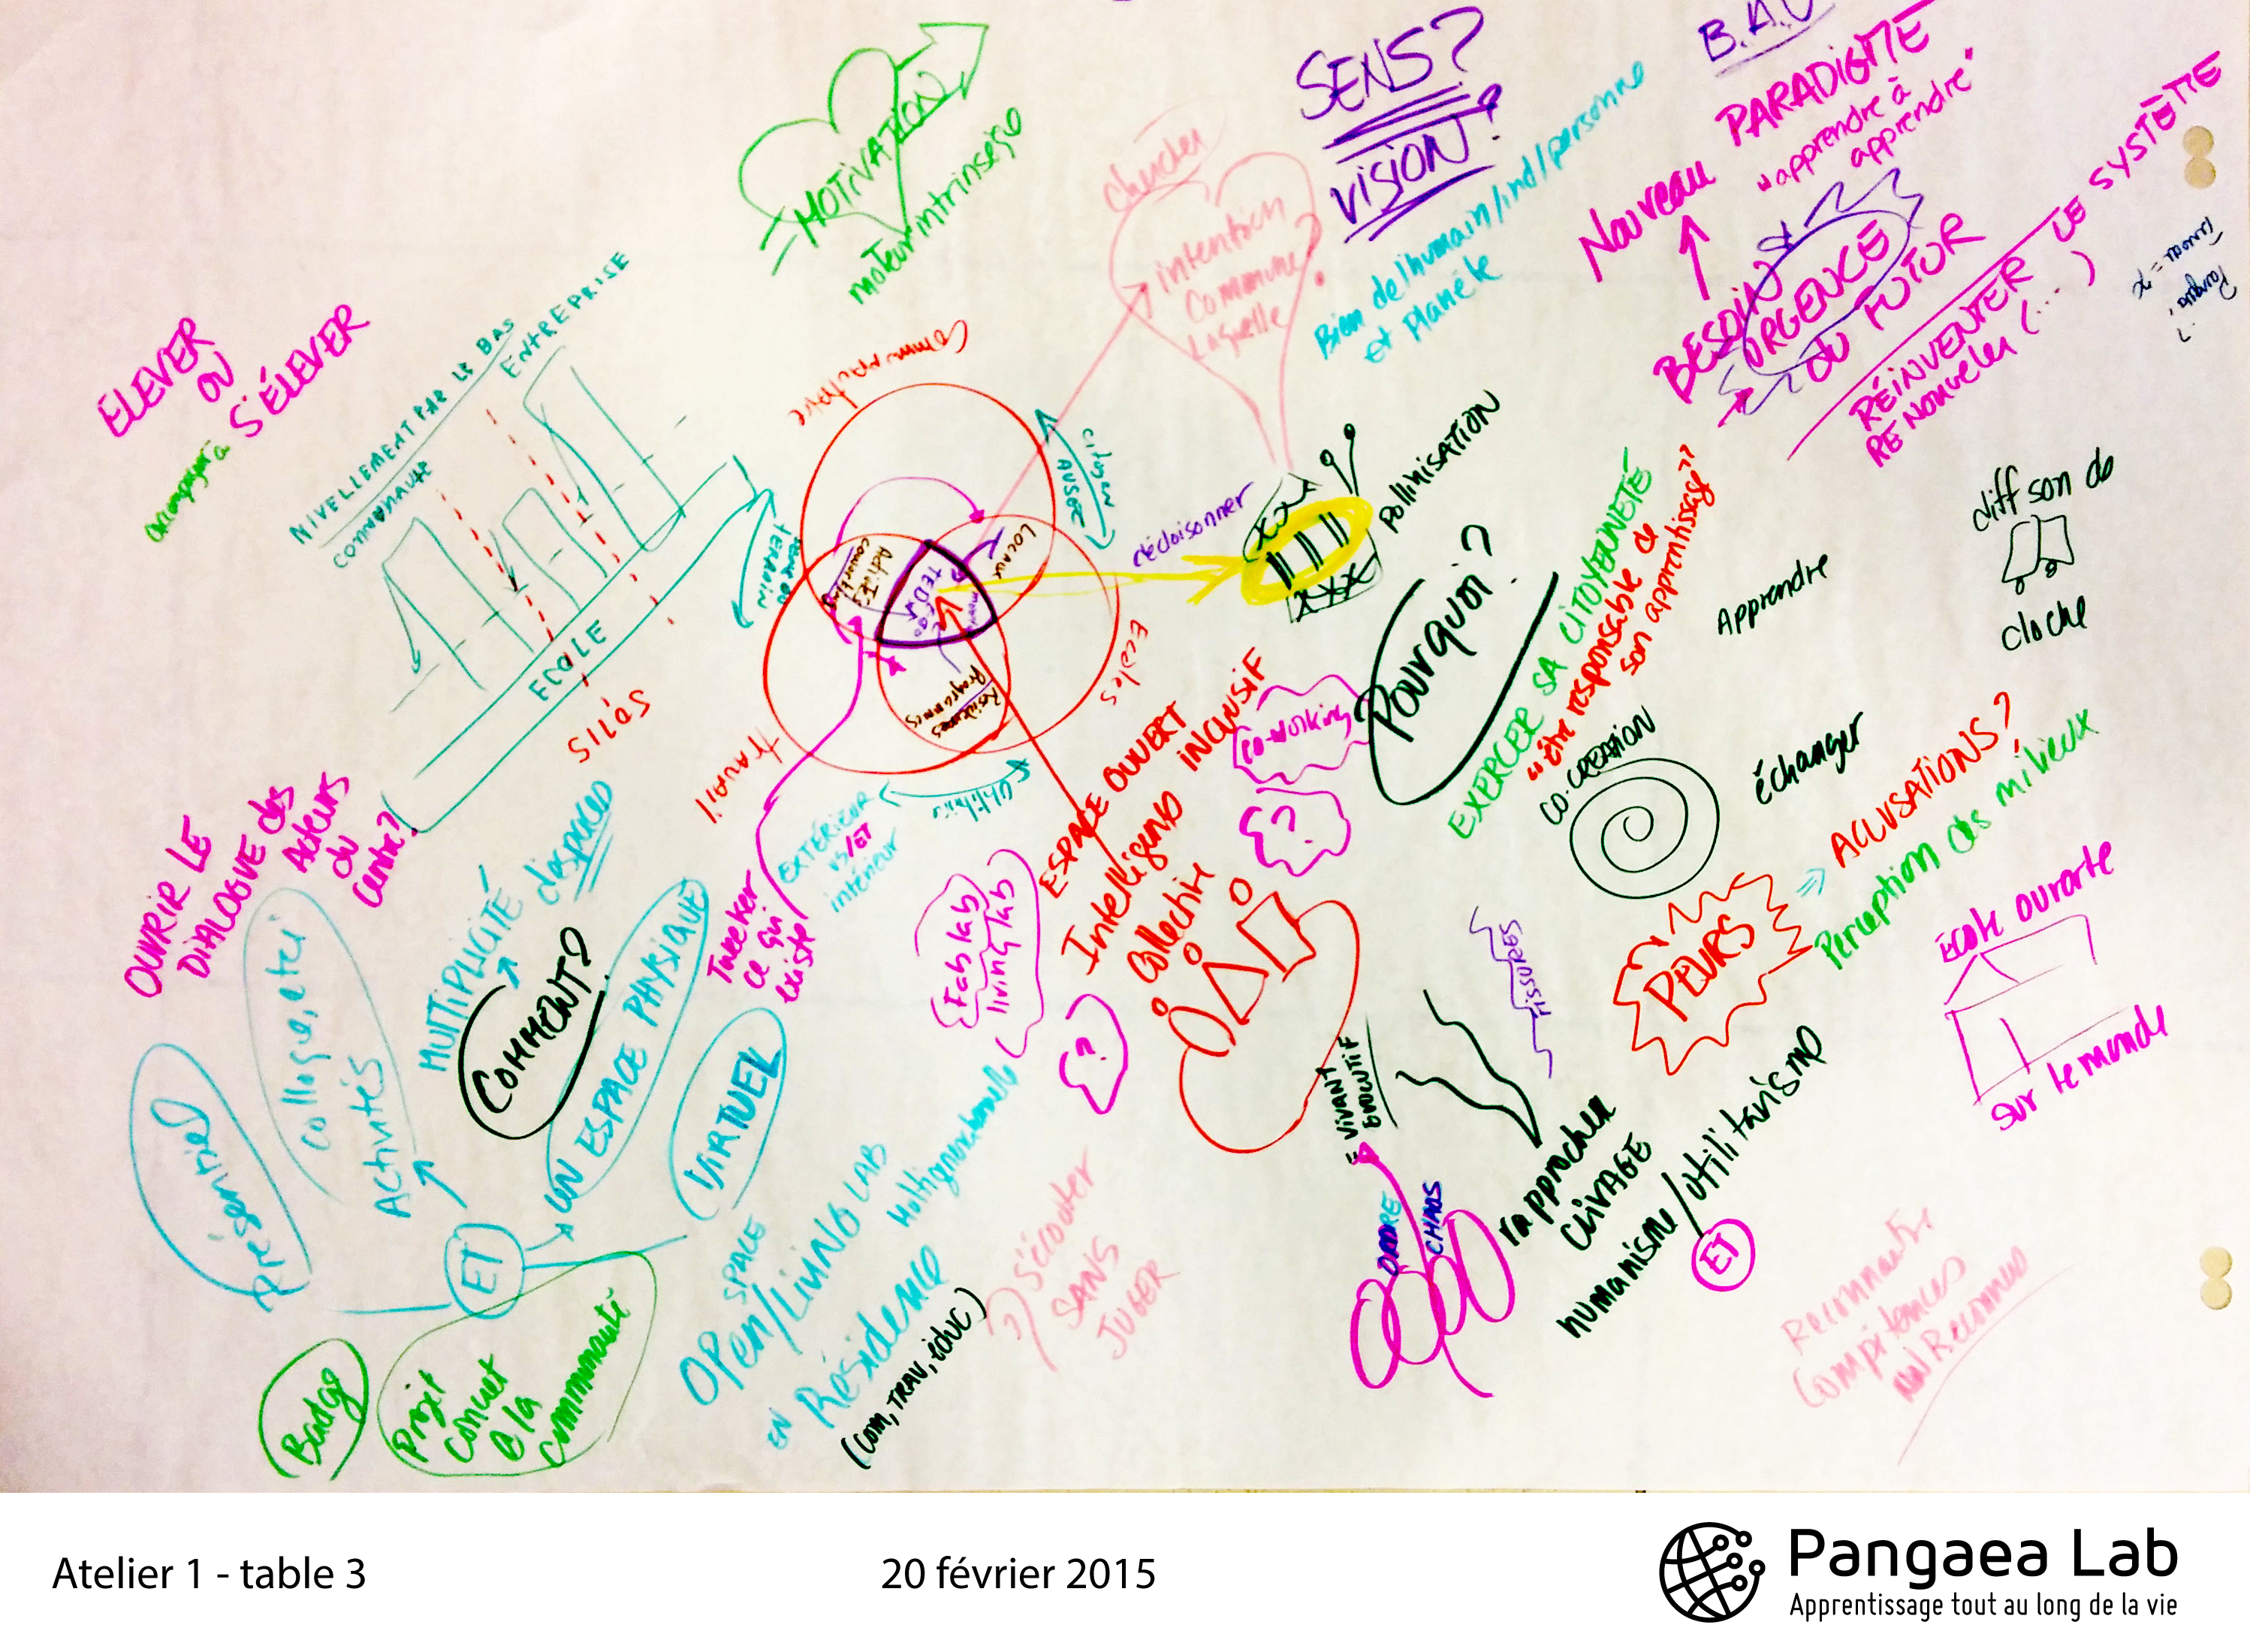 MOTIVATION
moteur intrinsèque
chercher
intention
commune
laquelle
SENS?
VISION?
Bien de l'humain/ind/personne
et planète
Nouveau PARADIGME
"apprendre à
apprendre"
BESOIN
URGENCE
DU FUTUR
RÉINVENTER LE SYSTÈME
RENOUVELER (...)
ELEVER
OU
S'ÉLEVER
accompagner à
NIVELLEMENT PAR LE BAS
COMMUNAUTÉ
ENTREPRISE
ECOLE
SOLIS
Communautaire
citoyen
Locaux
Activités
TEDx
Résidences
Programmes
Ecoles
travail
TERRAIN
décloisonner
Pollinisation
Pourquoi?
EXERCER SA CITOYENNETÉ
"être responsable de
son apprentissage"
Apprendre
diff son de
cloche
co-working
?
CO-CREATION
échanger
ACCUSATIONS?
Perception des milieux
PEURS
École ouverte
sur le monde
FISSURES
OUVRIR LE
DIALOGUE des
Acteurs
du
Centre?
MULTIPLICITÉ d'espaces
COMMENT?
UN ESPACE PHYSIQUE
VIRTUEL
Tweeker
ce qui
existe
EXTÉRIEUR
VS/ET
intérieur
ESPACE OUVERT
INCLUSIF
Intelligence
Collective
Fab lab
living lab
?
= VIVANT
ÉVOLUTIF
ORDRE
CHAOS
rapprocher
CLIVAGE
humanisme/utilitarisme
ET
Présentiel
colloque, etc
Activités
ET
Badge
Projet
concret
à la
communauté
SPACE
OPEN/LIVING LAB
Multigénérationnel
EN Résidence
(com, TRAV, éduc)
S'écouter
SANS
JUGER
Reconnaître
Compétences
Atelier 1 - table 3
20 février 2015
Pangaea Lab
Apprentissage tout au long de la vie